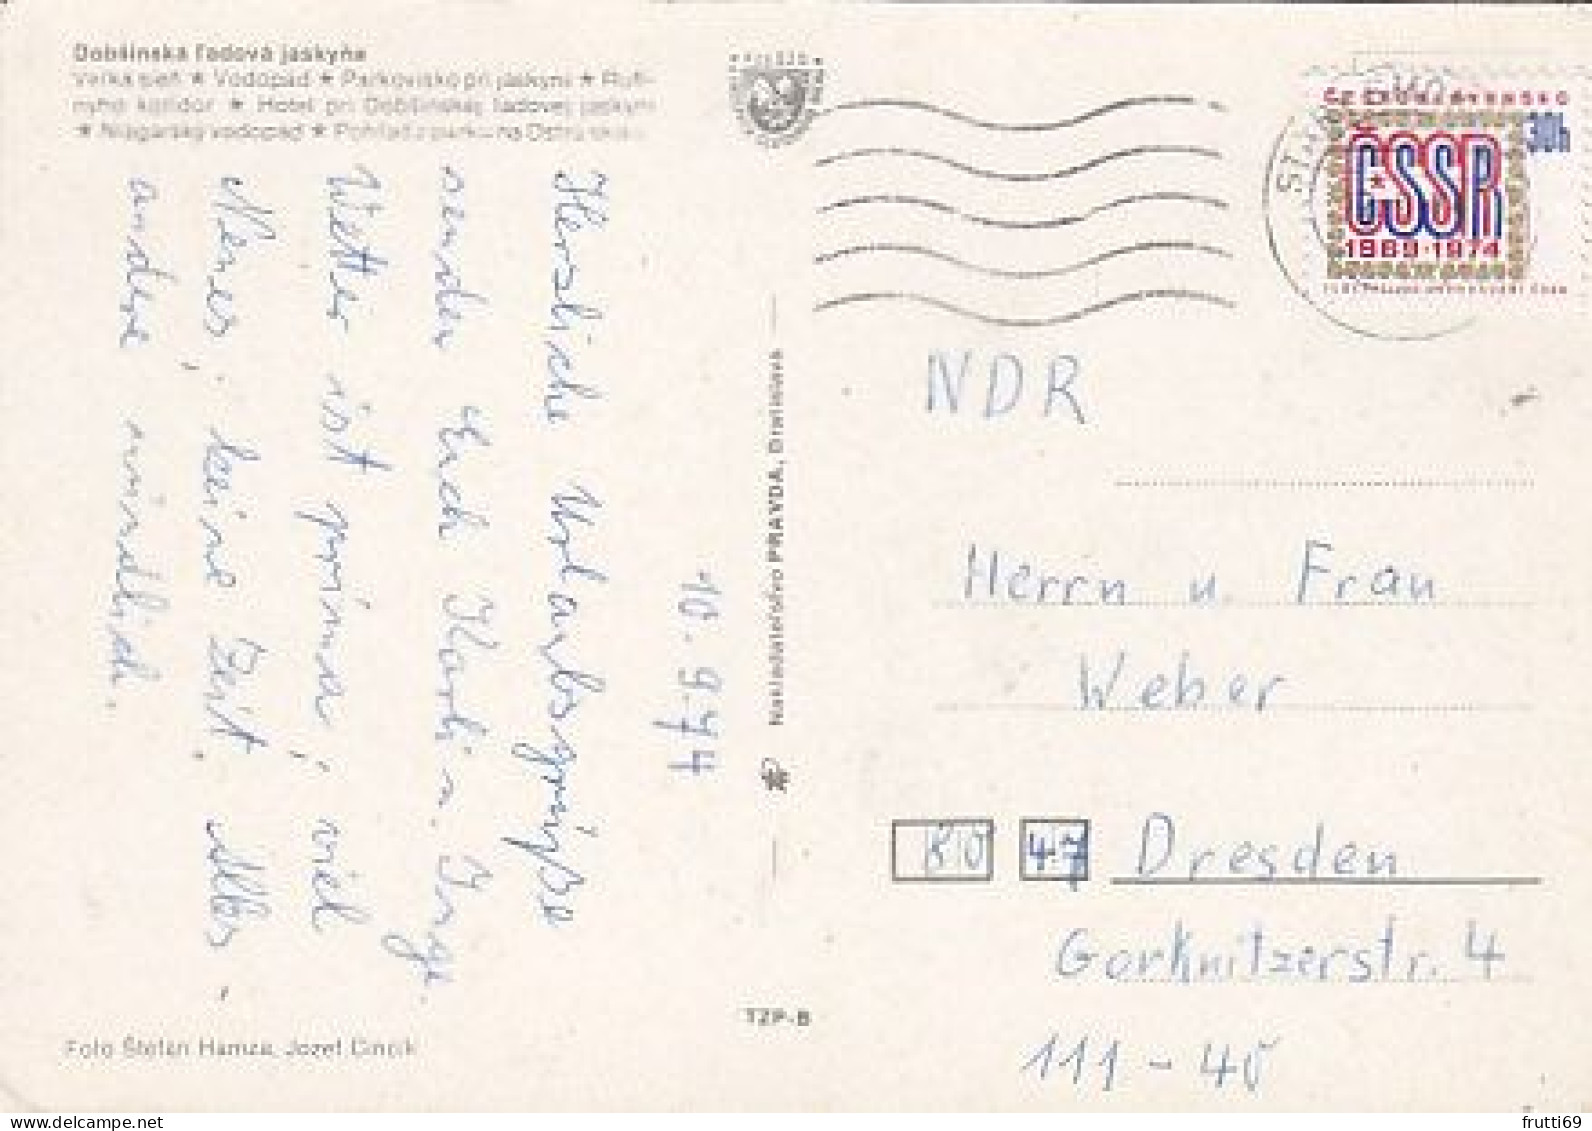 Dobšinská ľadová jaskyňa
Veľká sieň ★ Vodopád ★ Parkovisko pri jaskyni ★ Rufi-
nyho koridor ★ Hotel pri Dobšinskej ľadovej jaskyni
★ Niagarský vodopád ★ Pohľad z parku na Ostrú skalu
10. 9. 74
Herzliche Urlaubsgrüße
senden Euch Karli u. Inge.
Wetter ist prima, viel
Neues, keine Zeit. Alles
andere mündlich.
Foto Štefan Hamza, Jozef Cincík
Nakladateľstvo PRAVDA, Bratislava
TZP-B
ČESKOSLOVENSKO
30h
ČSSR
1969·1974
NDR
Herrn u. Frau
Weber
80 47 Dresden
Gorknitzerstr. 4
111-40
frutti69